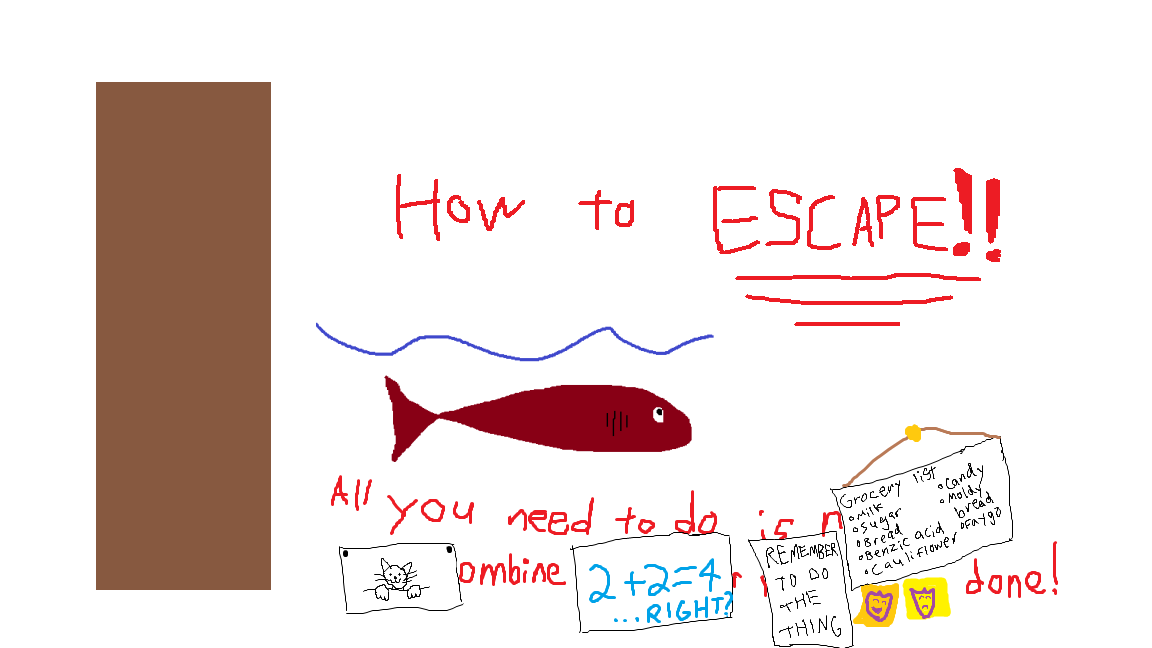 How to ESCAPE!!
All you need to do is
ombine
done!
2+2=4
...RIGHT?
REMEMBER
TO DO
THE
THING
Grocery list
•Milk
•Sugar
•Bread
•Benzic acid
•Cauliflower
•Candy
•Moldy
bread
•Faygo